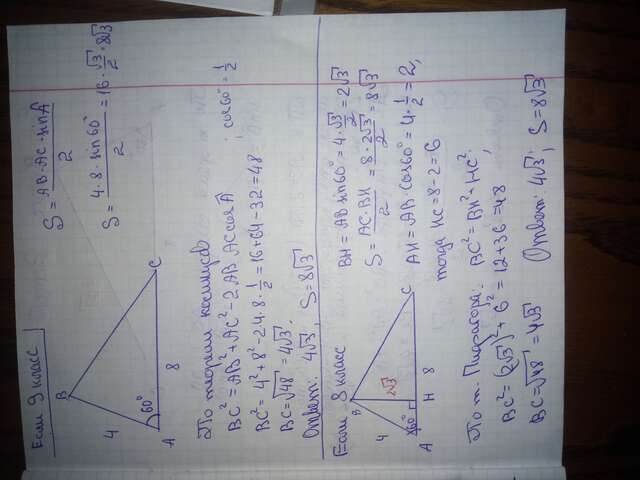 Если 9 класс
B
4
60°
A
8
C
S = AB·AC·sinA / 2
S = 4·8·sin60° / 2 = 16·√3/2 = 8√3
По теореме косинусов
BC² = AB² + AC² - 2AB·AC cosA ; cos60° = 1/2
BC² = 4² + 8² - 2·4·8·1/2 = 16 + 64 - 32 = 48
BC = √48 = 4√3
Ответ: 4√3 , S = 8√3
Если 8 класс
B
4
2√3
60°
A
H
8
C
BH = AB sin60° = 4·√3/2 = 2√3
S = AC·BH / 2 = 8·2√3 / 2 = 8√3
AH = AB·cos60° = 4·1/2 = 2,
тогда HC = 8 - 2 = 6
По т. Пифагора: BC² = BH² + HC²;
BC² = (2√3)² + 6² = 12 + 36 = 48
BC = √48 = 4√3
Ответ: 4√3 ; S = 8√3